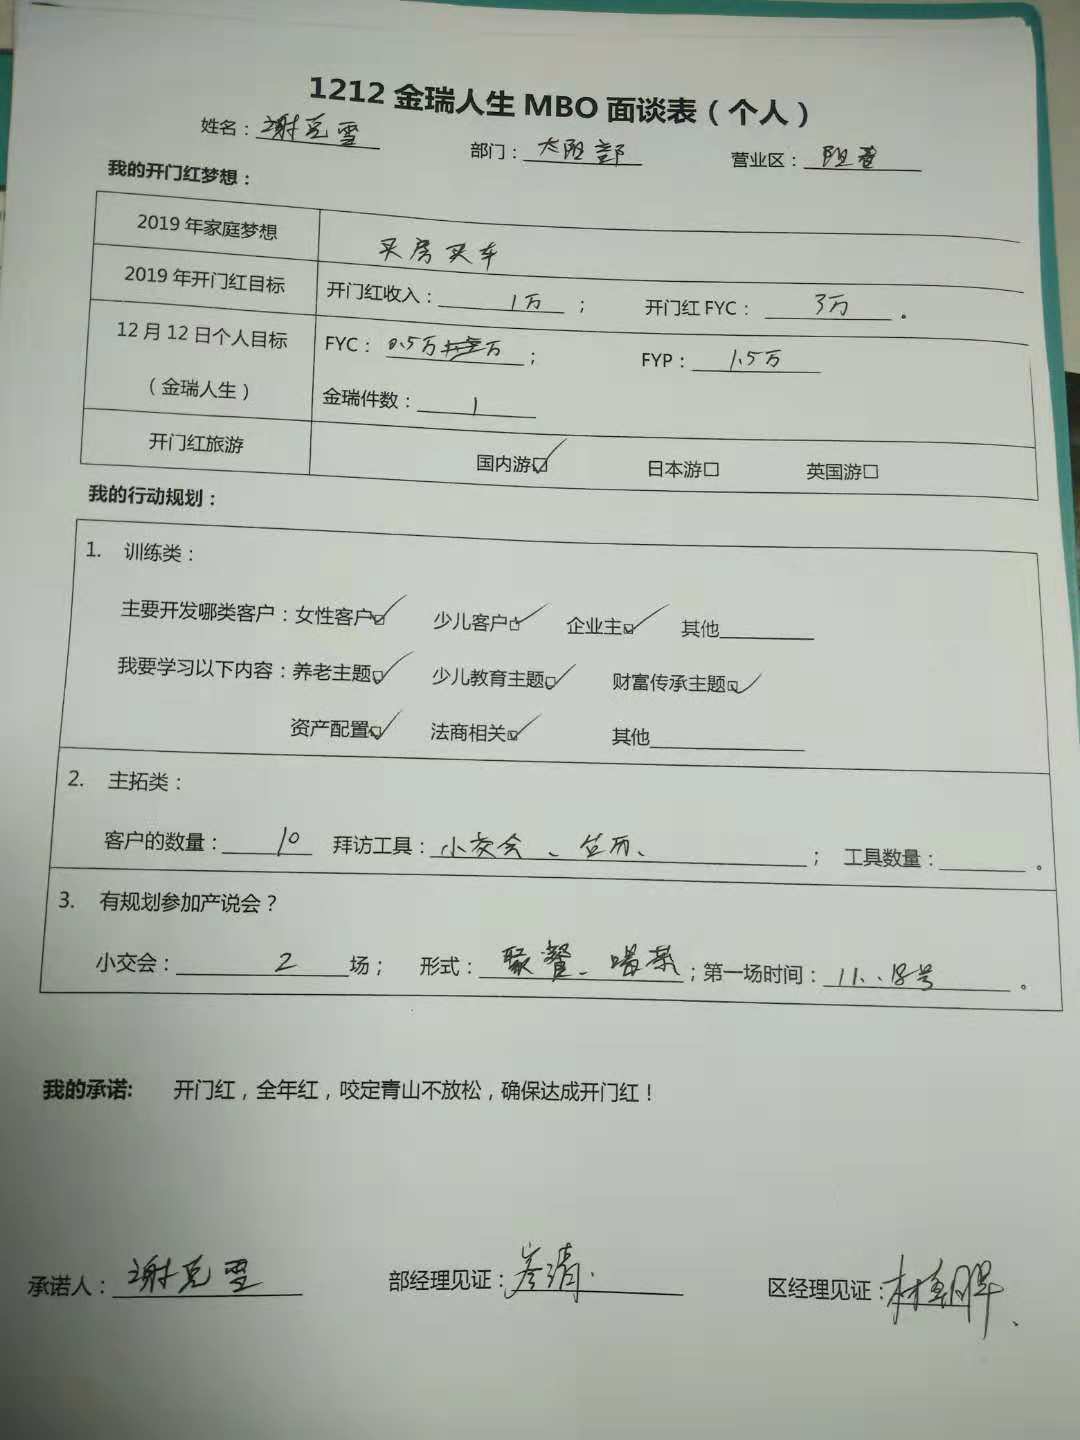 1212金瑞人生MBO面谈表（个人）
姓名：谢克雪 部门：太阳部 营业区：
我的开门红梦想：
2019年家庭梦想 买房买车
2019年开门红目标 开门红收入：1万； 开门红FYC：3万。
12月12日个人目标 FYC：0.5万 万； FYP：1.5万
（金瑞人生） 金瑞件数：1
开门红旅游 国内游☑ 日本游□ 英国游□
我的行动规划：
1. 训练类：
主要开发哪类客户：女性客户☑ 少儿客户☑ 企业主☑ 其他
我要学习以下内容：养老主题☑ 少儿教育主题☑ 财富传承主题☑
资产配置☑ 法商相关☑ 其他
2. 主拓类：
客户的数量：10 拜访工具：小交会、台历、； 工具数量：。
3. 有规划参加产说会？
小交会：2场； 形式：聚餐、喝茶；第一场时间：11、18号。
我的承诺: 开门红，全年红，咬定青山不放松，确保达成开门红！
承诺人：谢克雪 部经理见证： 区经理见证：